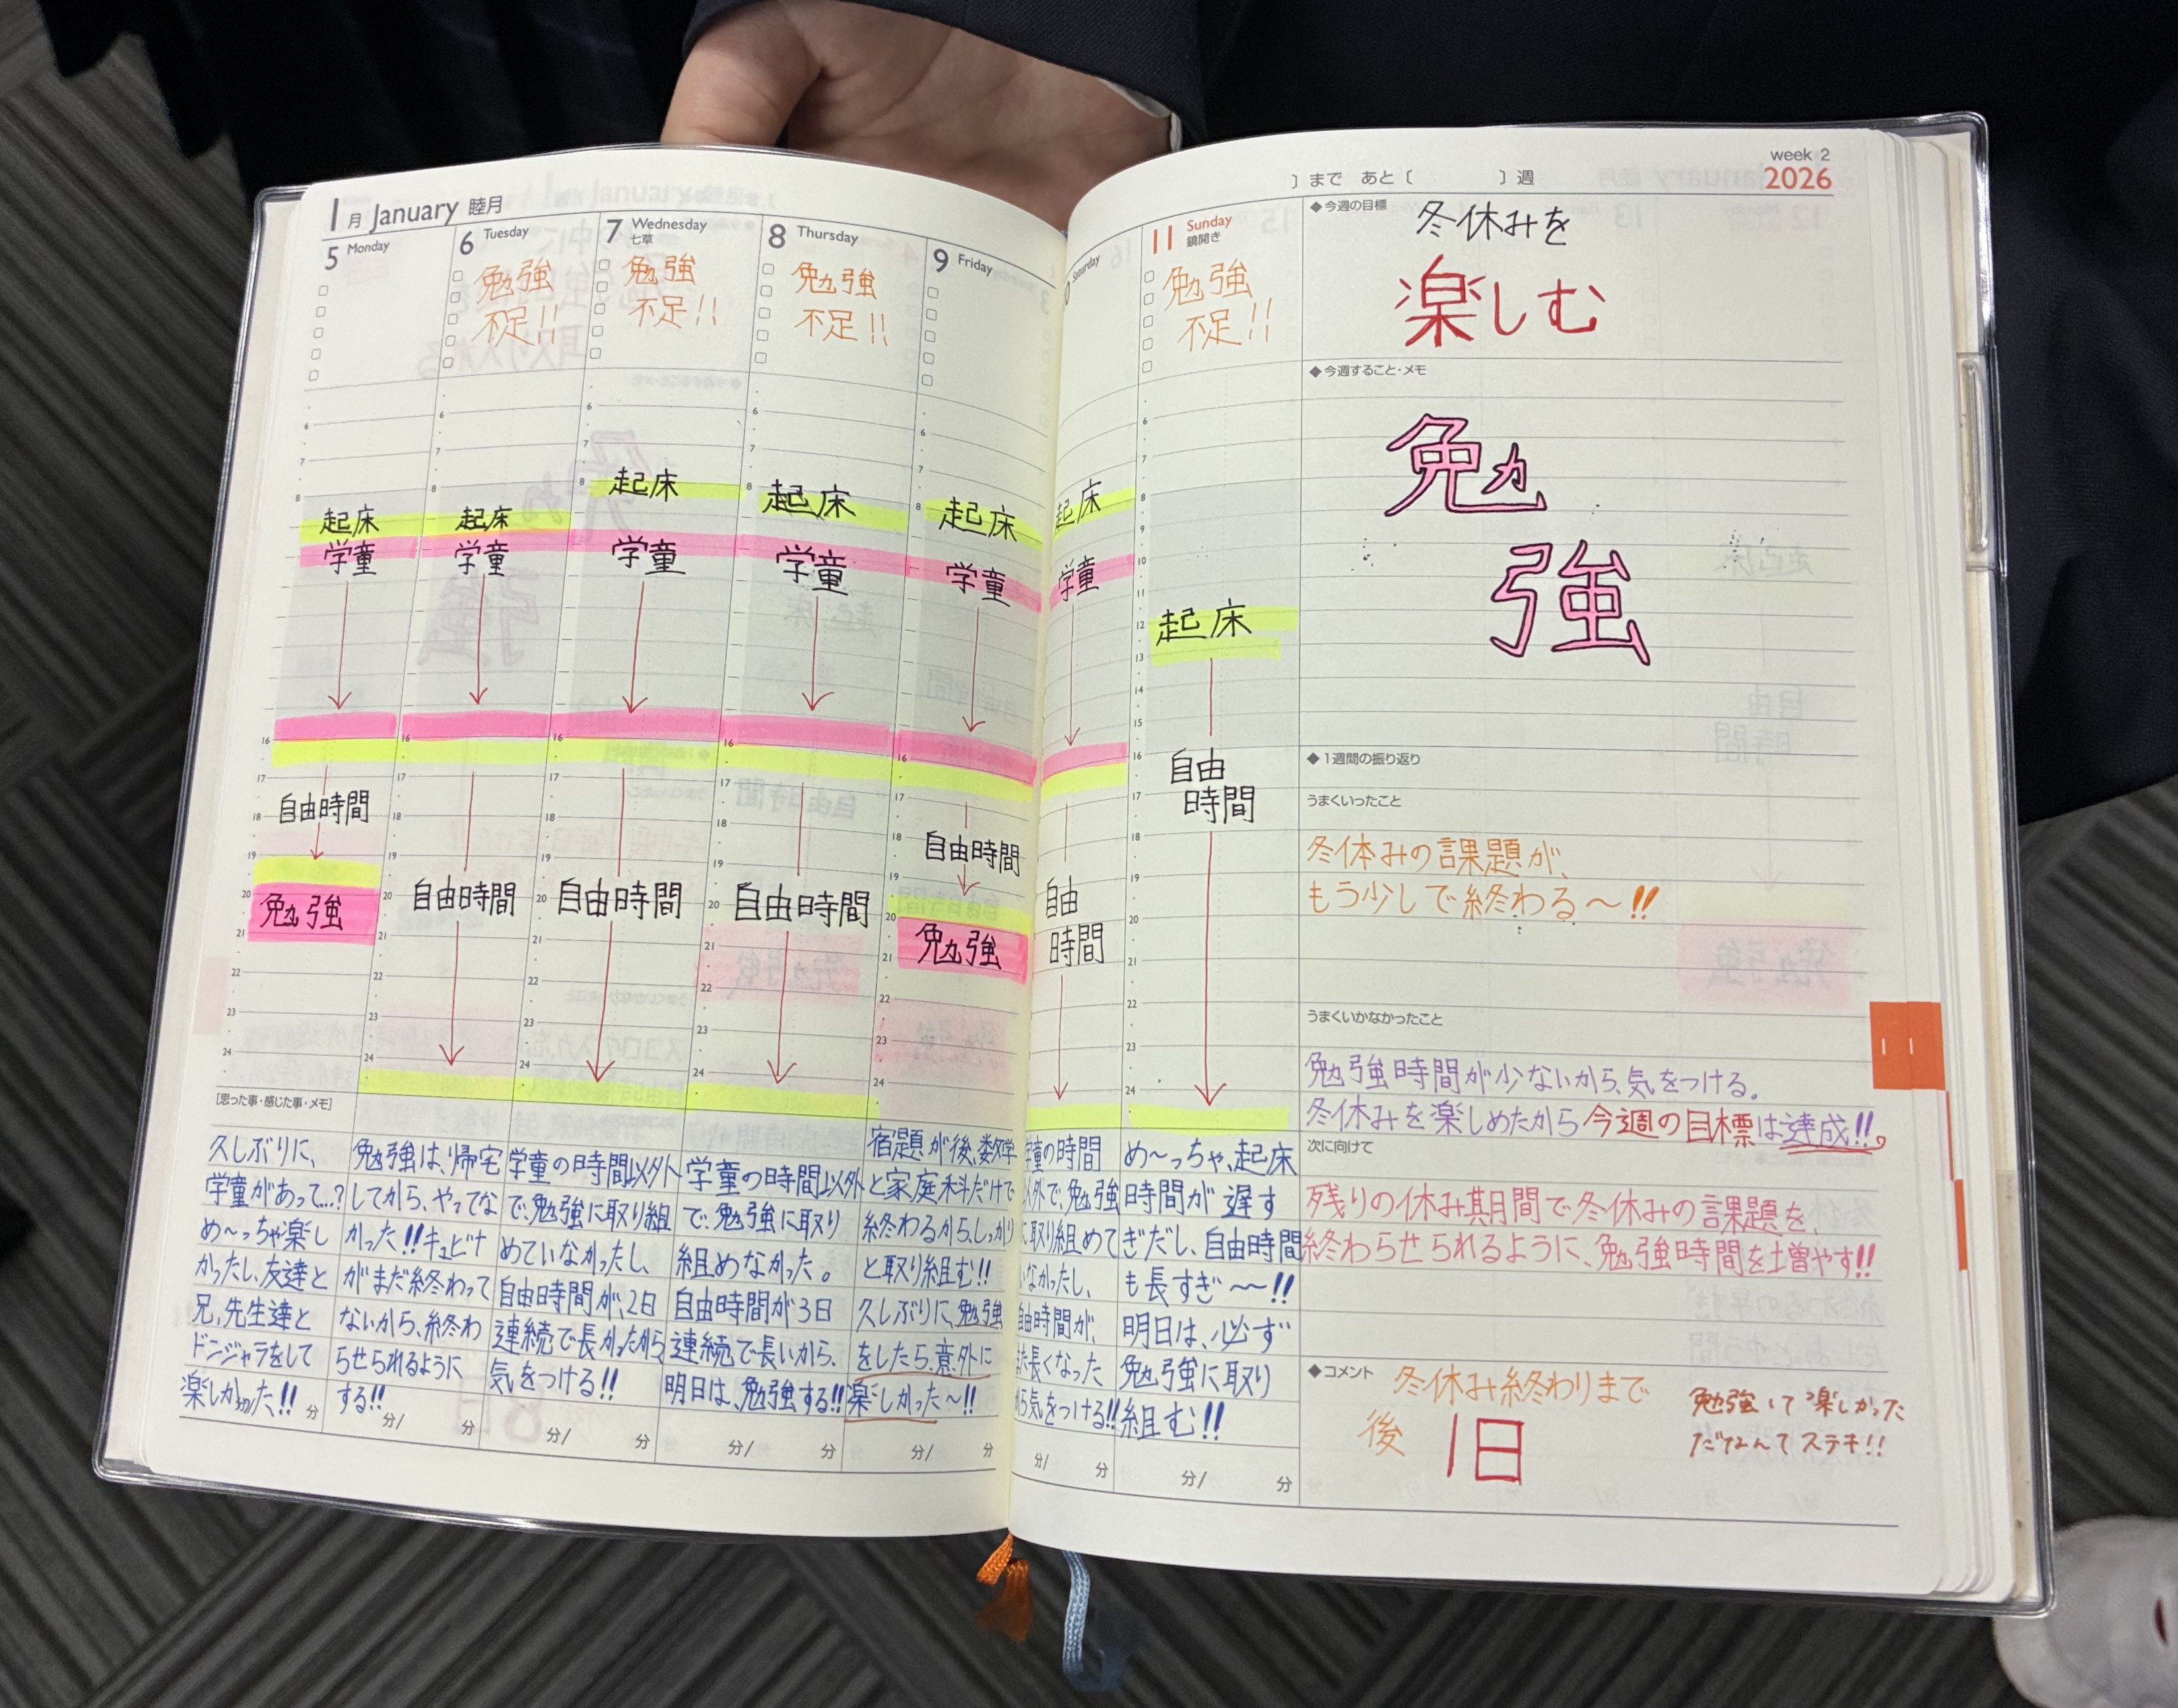 1月 January 睦月
5 Monday
起床
学童
自由時間
勉強
[思った事・感じた事・メモ]
久しぶりに、
学童があって…?
め〜っちゃ楽し
かったし、友達と
兄、先生達と
ドンジャラをして
楽しかった!! 分
6 Tuesday
勉強
不足!!
起床
学童
自由時間
勉強は、帰宅
してから、やってな
かった!!キュビナ
がまだ終わって
ないから、終わ
らせられるように
する!!
分/ 分
7 Wednesday
七草
勉強
不足!!
起床
学童
自由時間
学童の時間以外
で、勉強に取り組
めていなかったし、
自由時間が、2日
連続で長かったから
気をつける!!
分/ 分
8 Thursday
勉強
不足!!
起床
学童
自由時間
学童の時間以外
で、勉強に取り
組めなかった。
自由時間が3日
連続で長いから、
明日は、勉強する!!
分/ 分
9 Friday
起床
学童
自由時間
勉強
宿題が後、数学
と家庭科だけで
終わるから、しっかり
と取り組む!!
久しぶりに、勉強
をしたら、意外に
楽しかった〜!!
分/ 分
Saturday
起床
学童
自由
時間
学童の時間
以外で、勉強
に取り組めて
いなかったし、
自由時間が、
また長くなった
から気をつける!!
分/ 分
11 Sunday
鏡開き
勉強
不足!!
起床
自由
時間
め〜っちゃ、起床
時間が遅す
ぎだし、自由時間
も長すぎ〜〜!!
明日は、必ず
勉強に取り
組む!!
分/ 分
〕まで あと〔 〕週
week 2
2026
◆今週の目標
冬休みを
楽しむ
◆今週すること・メモ
勉
強
◆1週間の振り返り
うまくいったこと
冬休みの課題が、
もう少しで終わる〜!!
うまくいかなかったこと
勉強時間が少ないから、気をつける。
冬休みを楽しめたから今週の目標は達成!!
次に向けて
残りの休み期間で冬休みの課題を、
終わらせられるように、勉強時間を増やす!!
◆コメント
冬休み終わりまで
後 1日
勉強して楽しかった
だなんてステキ!!